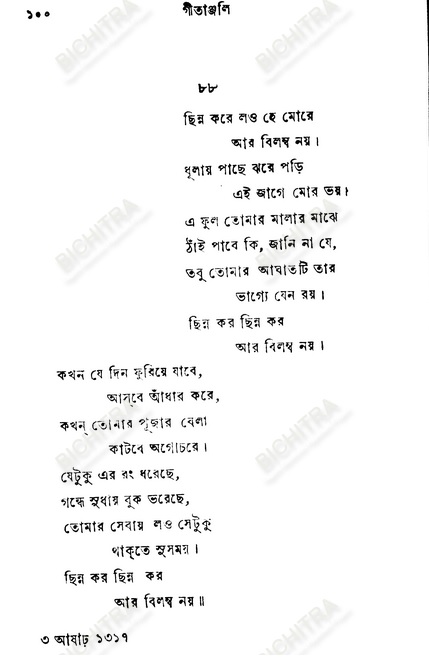 ১০০
গীতাঞ্জলি
৮৮
ছিন্ন করে লও হে মোরে
আর বিলম্ব নয়।
ধূলায় পাছে ঝরে পড়ি
এই জাগে মোর ভয়।
এ ফুল তোমার মালার মাঝে
ঠাঁই পাবে কি, জানি না যে,
তবু তোমার আঘাতটি তার
ভাগ্যে যেন রয়।
ছিন্ন কর ছিন্ন কর
আর বিলম্ব নয়।
কখন যে দিন ফুরিয়ে যাবে,
আস্‌বে আঁধার করে,
কখন্‌ তোমার পূজার বেলা
কাটবে অগোচরে।
যেটুকু এর রং ধরেছে,
গন্ধে সুধায় বুক ভরেছে,
তোমার সেবায় লও সেটুকু
থাক্‌তে সুসময়।
ছিন্ন কর ছিন্ন কর
আর বিলম্ব নয়॥
৩ আষাঢ় ১৩১৭
BICHITRA
BICHITRA
BICHITRA
BICHITRA
BICHITRA
BICHITRA
BICHITRA
BICHITRA